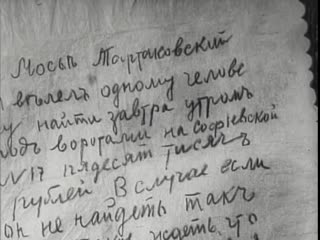 Мосье Тартаковский
велелъ одному челове
у найти завтра утромъ
одъ воротами на Софиевской
N 17 пядесят тисячъ
рублей В случае если
он не найдетъ такъ
ждетъ что